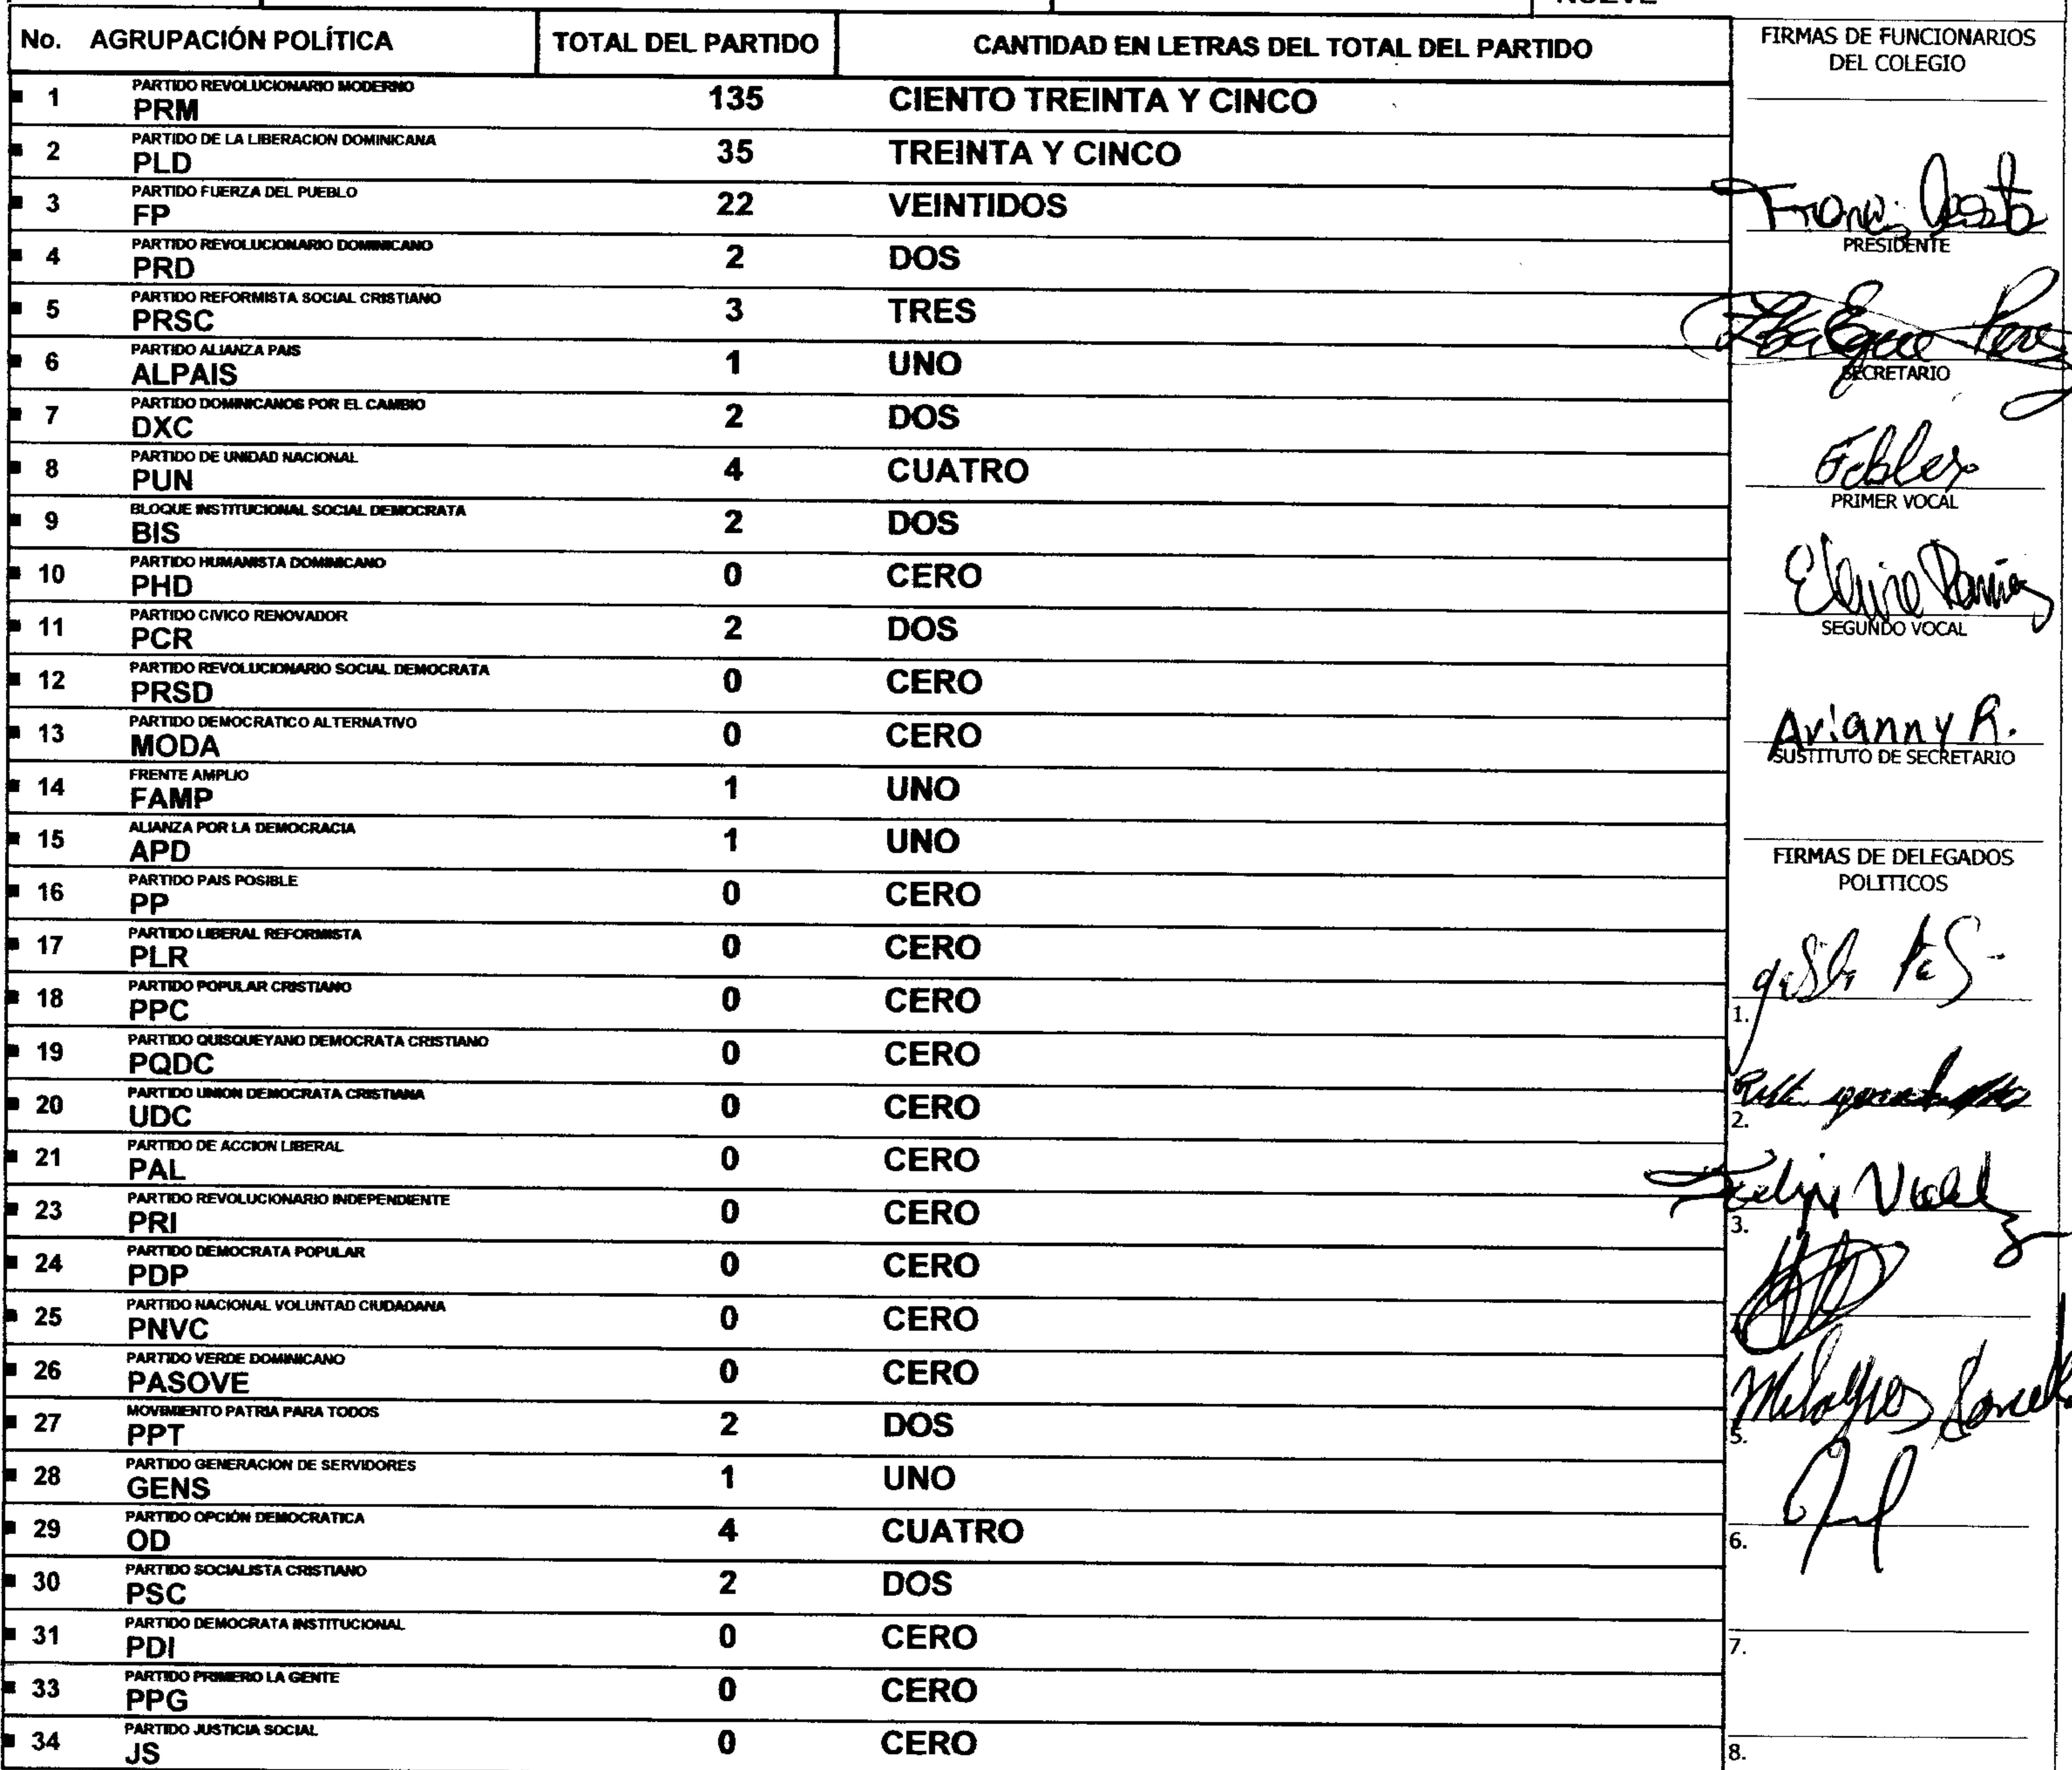 No. AGRUPACIÓN POLÍTICA TOTAL DEL PARTIDO CANTIDAD EN LETRAS DEL TOTAL DEL PARTIDO
PARTIDO REVOLUCIONARIO MODERNO
1 PRM 135 CIENTO TREINTA Y CINCO
PARTIDO DE LA LIBERACION DOMINICANA
2 PLD 35 TREINTA Y CINCO
PARTIDO FUERZA DEL PUEBLO
3 FP 22 VEINTIDOS
PARTIDO REVOLUCIONARIO DOMINICANO
4 PRD 2 DOS
PARTIDO REFORMISTA SOCIAL CRISTIANO
5 PRSC 3 TRES
PARTIDO ALIANZA PAIS
6 ALPAIS 1 UNO
PARTIDO DOMINICANOS POR EL CAMBIO
7 DXC 2 DOS
PARTIDO DE UNIDAD NACIONAL
8 PUN 4 CUATRO
BLOQUE INSTITUCIONAL SOCIAL DEMOCRATA
9 BIS 2 DOS
PARTIDO HUMANISTA DOMINICANO
10 PHD 0 CERO
PARTIDO CIVICO RENOVADOR
11 PCR 2 DOS
PARTIDO REVOLUCIONARIO SOCIAL DEMOCRATA
12 PRSD 0 CERO
PARTIDO DEMOCRATICO ALTERNATIVO
13 MODA 0 CERO
FRENTE AMPLIO
14 FAMP 1 UNO
ALIANZA POR LA DEMOCRACIA
15 APD 1 UNO
PARTIDO PAIS POSIBLE
16 PP 0 CERO
PARTIDO LIBERAL REFORMISTA
17 PLR 0 CERO
PARTIDO POPULAR CRISTIANO
18 PPC 0 CERO
PARTIDO QUISQUEYANO DEMOCRATA CRISTIANO
19 PQDC 0 CERO
PARTIDO UNION DEMOCRATA CRISTIANA
20 UDC 0 CERO
PARTIDO DE ACCION LIBERAL
21 PAL 0 CERO
PARTIDO REVOLUCIONARIO INDEPENDIENTE
23 PRI 0 CERO
PARTIDO DEMOCRATA POPULAR
24 PDP 0 CERO
PARTIDO NACIONAL VOLUNTAD CIUDADANA
25 PNVC 0 CERO
PARTIDO VERDE DOMINICANO
26 PASOVE 0 CERO
MOVIMIENTO PATRIA PARA TODOS
27 PPT 2 DOS
PARTIDO GENERACION DE SERVIDORES
28 GENS 1 UNO
PARTIDO OPCIÓN DEMOCRATICA
29 OD 4 CUATRO
PARTIDO SOCIALISTA CRISTIANO
30 PSC 2 DOS
PARTIDO DEMOCRATA INSTITUCIONAL
31 PDI 0 CERO
PARTIDO PRIMERO LA GENTE
33 PPG 0 CERO
PARTIDO JUSTICIA SOCIAL
34 JS 0 CERO
FIRMAS DE FUNCIONARIOS
DEL COLEGIO
PRESIDENTE
SECRETARIO
Febles
PRIMER VOCAL
SEGUNDO VOCAL
Arianny R.
SUSTITUTO DE SECRETARIO
FIRMAS DE DELEGADOS
POLITICOS
1.
2.
3.
5. Milagros
6.
7.
8.